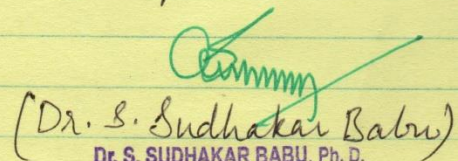 (Dr. S. Sudhakar Babu)
Dr. S. SUDHAKAR BABU, Ph. D.